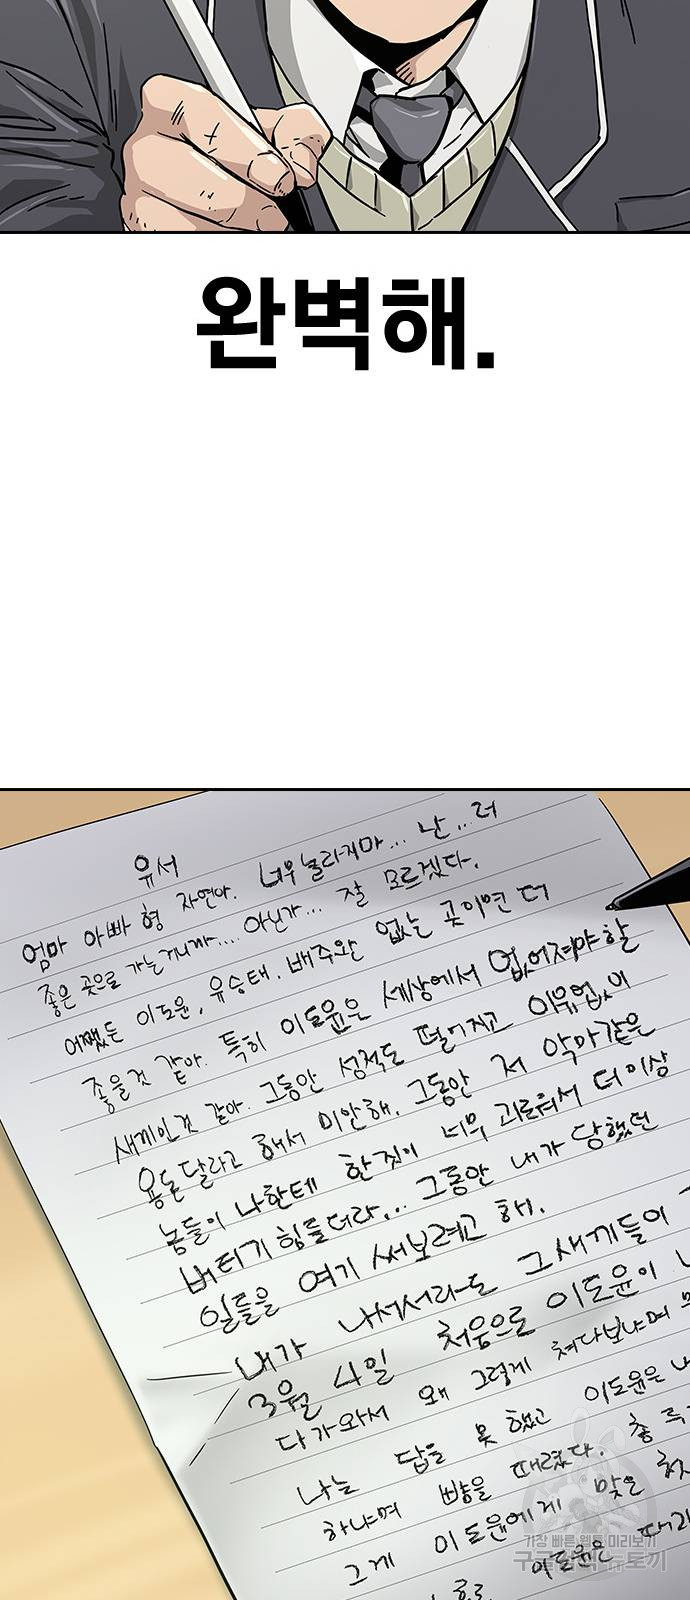 완벽해.
유서
엄마 아빠 형 자연아. 너무 놀라지마... 난... 더
좋은 곳으로 가는거니까.... 아닌가... 잘 모르겠다.
어쨌든 이도윤, 유승태, 배주완 없는 곳이면 더
좋을것 같아. 특히 이도윤은 세상에서 없어져야할
새끼인것 같아. 그동안 성적도 떨어지고 이유없이
용돈달라고 해서 미안해. 그동안 저 악마같은
놈들이 나한테 한짓이 너무 괴로워서 더이상
버티기 힘들더라... 그동안 내가 당했던
일들을 여기 써보려고 해.
내가 나서서라도 그새끼들이
3월 4일 처음으로 이도윤이
다가와서 왜 그렇게 쳐다보냐며
나는 답을 못 했고 이도윤은
하냐며 뺨을 때렸다. 총
그게 이도윤에게 맞은 첫
이도윤은 때리
가장 빠른 웹툰 미리보기
뉴토끼